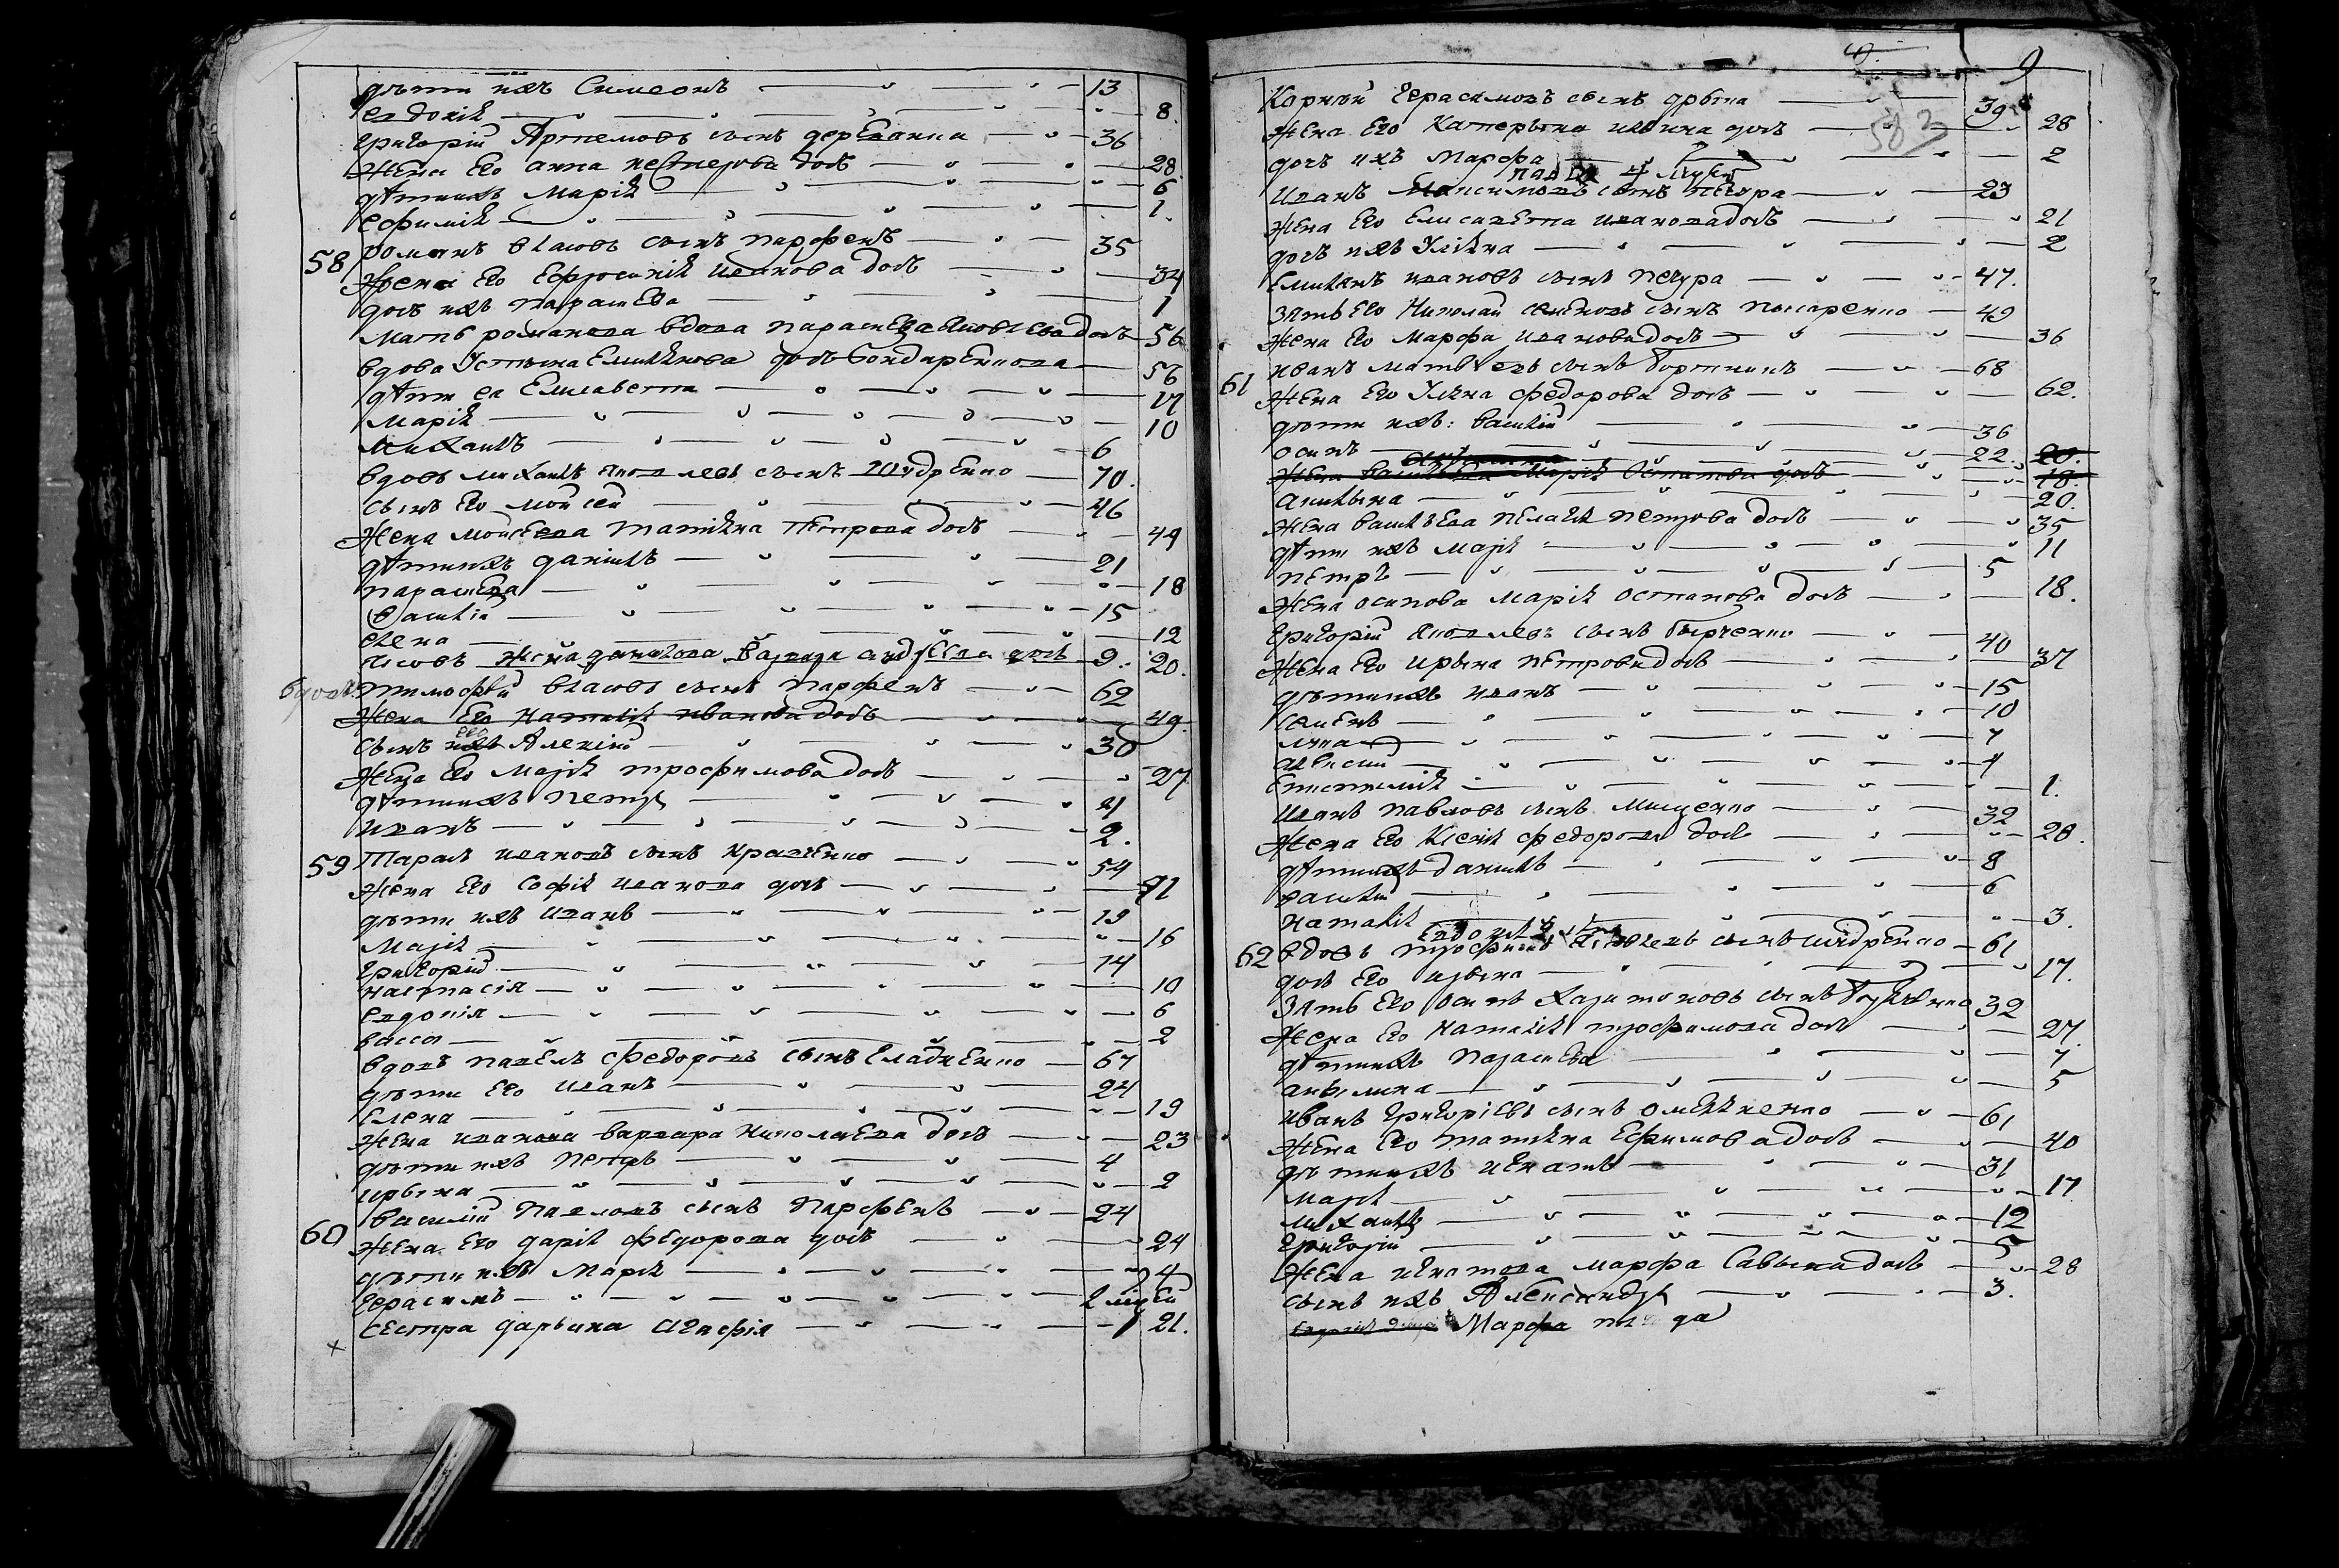 дѣти ихъ Симеонъ 13
евдокія 8.
григорій Артемовъ сынъ деревянка 36
жена его анна нестерова дочь 28
дѣти ихъ Марія 6
ефимія 1.
58 романъ власовъ сынъ парфенъ 35
Жена его Ефросинія иванова дочь 34
дочь ихъ параскева 1
мать романова вдова параскева яковлева дочь 56
вдова Устина Емиліянова дочь бондаренкова 56
дѣти ея Елисавета 17
марія 10
михаилъ 6
вдовъ михаилъ яковлевъ сынъ шидренко 70.
сынъ его мойсей 46
жена мойсеева татіяна петрова дочь 49
дѣти ихъ даніилъ 21
параскева 18
василій 15
елена 12
яковъ 9. жена данилова варвара дочь 20.
вдовъ тимофѣй власовъ сынъ парфенъ 62
жена его наталія иванова дочь 49.
сынъ ихъ его Алексій 30
жена его марія трофимова дочь 27
дѣти ихъ петръ 4
иванъ 2.
59 Тарасъ ивановъ сынъ кравченко 54
жена его софія иванова дочь 41
дѣти ихъ иванъ 19
марія 16
григорій 14
настасія 10
евдокія 6
васса 2
вдовъ павелъ федоровъ сынъ гладченко 67
дѣти его иванъ 24
Елена 19
жена иванова варвара николаева дочь 23
дѣти ихъ петръ 4
ирына 2
60 василій павловъ сынъ парфенъ 24
жена его дарія федорова дочь 24
дѣти ихъ марія 4
герасимъ 2 мѣся
сестра дарьина агафія 21.
9
583
Корній герасимовъ сынъ дрыга 39
жена его катерына ильина дочь 28
дочь ихъ марфа 2
иванъ максимовъ сынъ печура 23
жена его елисавета иванова дочь 21
дочь ихъ Уліяна 2
Емиліянъ ивановъ сынъ печура 47.
зять его николай семеновъ сынъ писаренко 49
жена его марфа иванова дочь 36
61 иванъ матвѣевъ сынъ бортникъ 68
жена его Уліяна федорова дочь 62.
дѣти ихъ: василій 36
осипъ 22. 20.
жена василіева марія остапова дочь 18.
акилына 20.
жена василіева пелагія петрова дочь 35
дѣти ихъ марія 11
петръ 5
жена осипова марія остапова дочь 18.
григорій яковлевъ сынъ бырченко 40
жена его ирына петрова дочь 37
дѣти ихъ иванъ 15
семенъ 10
лука 7
алексій 4
Епистимія 1.
иванъ павловъ сынъ мищенко 32
жена его ксенія федорова дочь 28.
дѣти ихъ даніилъ 8
василій 6
наталія 3.
62 вдовъ трофимъ яковлевъ сынъ шидренко 61
дочь его ирына 17.
зять его осипъ харитоновъ сынъ 32
жена его наталія трофимова дочь 27.
дѣти ихъ параскева 7
акилина 5
иванъ григоріевъ сынъ омеляненко 61
жена его татіяна Ефимова дочь 40
дѣти ихъ игнатъ 31
марія 17
михаилъ 12
григорій 5
жена игнатова марфа савина дочь 28
сынъ ихъ Александръ 3.
Марфа